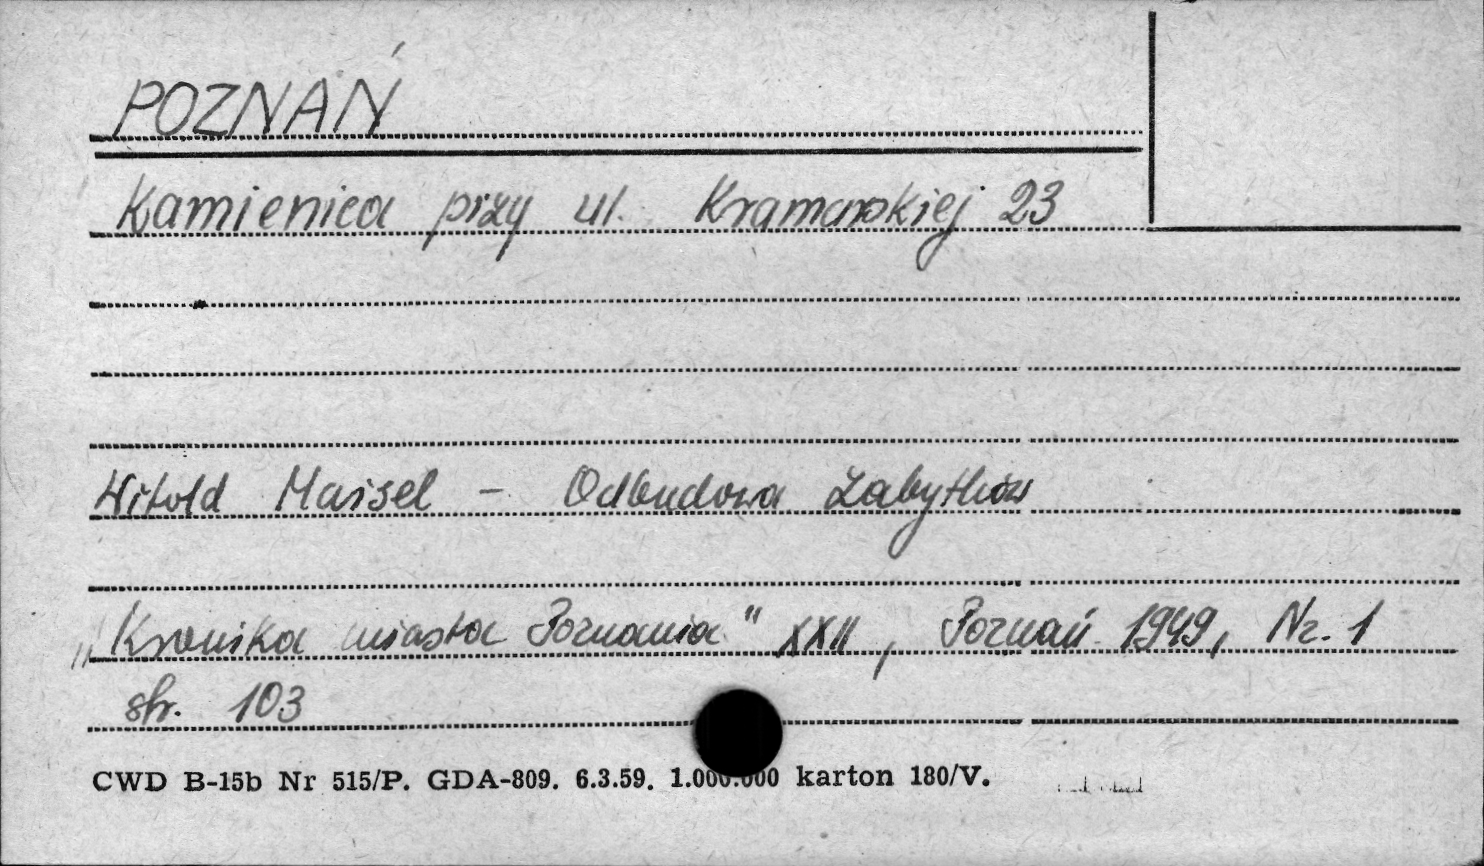 POZNAŃ
Kamienica przy ul. Kramarskiej 23
Witold Maisel - Odbudowa zabytków
"Kronika miasta Poznania" XXII, Poznań 1949, Nr. 1
str. 103
CWD B-15b Nr 515/P. GDA-809. 6.3.59. 1.000.000 karton 180/V.